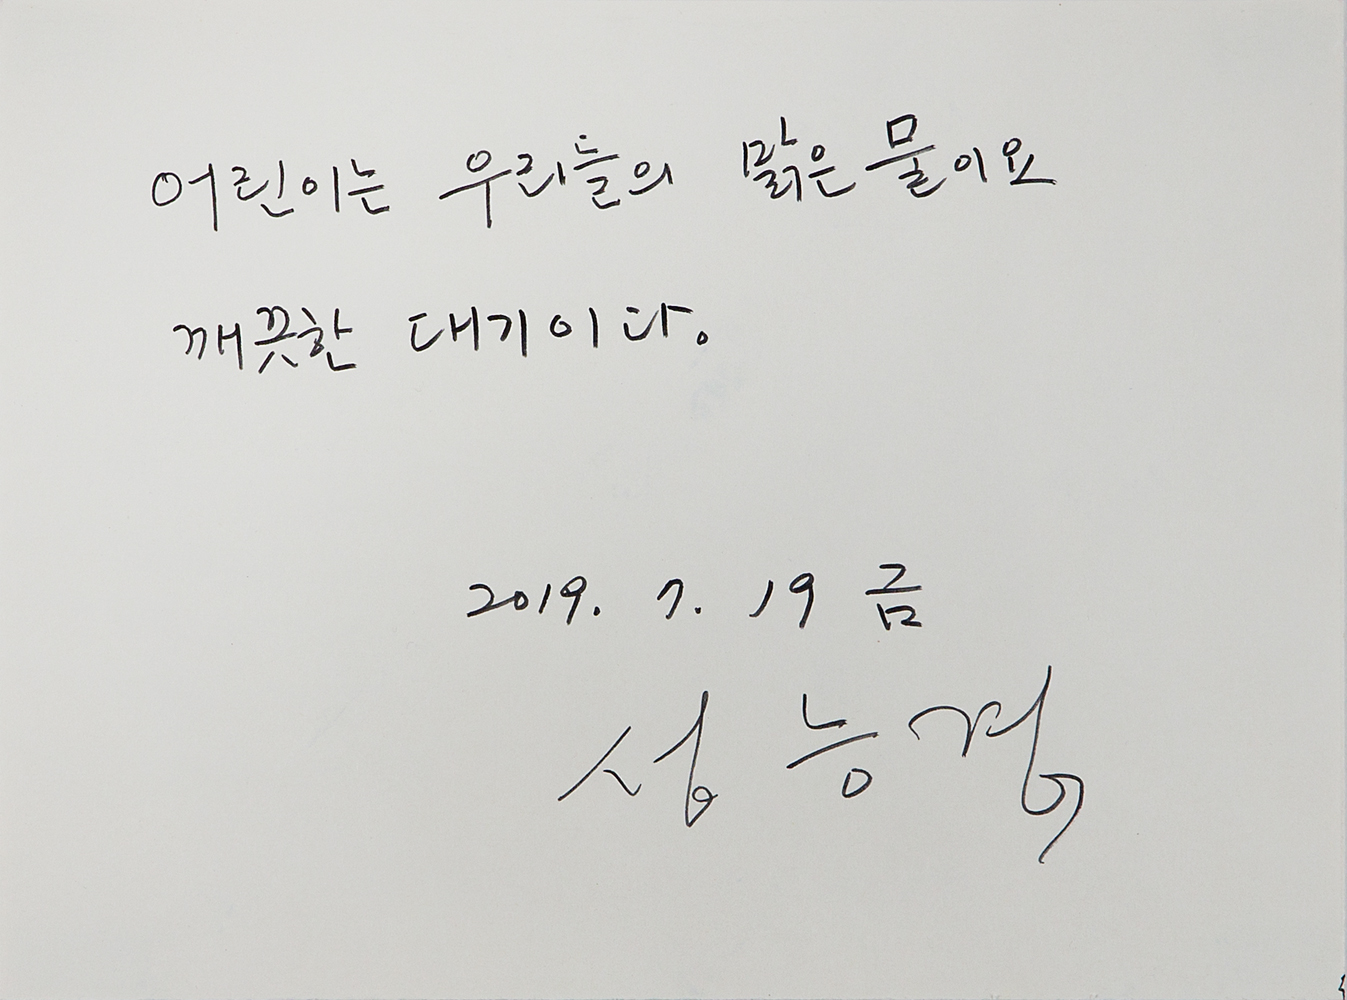 어린이는 우리들의 맑은 물이요
깨끗한 대기이다.
2019. 7. 19 금
성능경